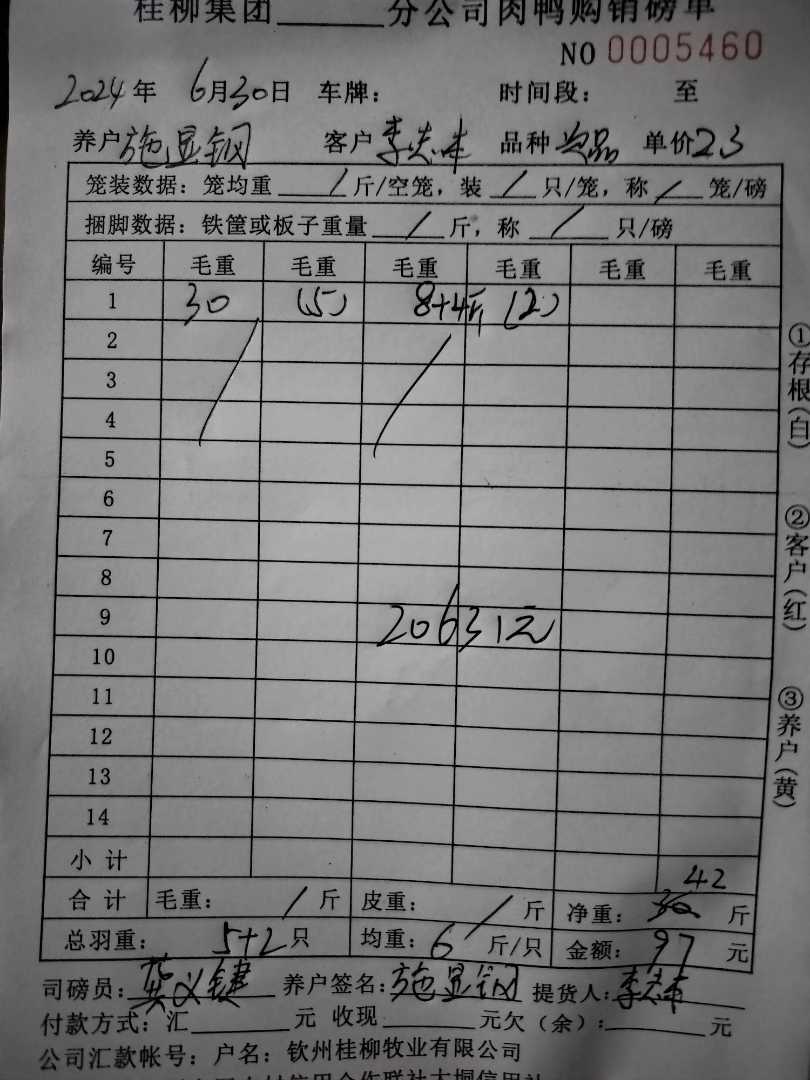 桂柳集团______分公司肉鸭购销磅单
NO 0005460
2024年 6月30日 车牌: 时间段: 至
养户施显钢 客户李志本 品种次品 单价2.3
笼装数据: 笼均重 / 斤/空笼, 装 / 只/笼, 称 / 笼/磅
捆脚数据: 铁筐或板子重量 / 斤, 称 / 只/磅
编号 毛重 毛重 毛重 毛重 毛重 毛重
1 30 (5) 8+4斤 (2)
2
3
4
5
6
7
8
9
20631元
10
11
12
13
14
小计
42
合计 毛重: / 斤 皮重: / 斤 净重: 30 斤
总羽重: 5+2只 均重: 6 斤/只 金额: 97 元
司磅员: 龚义键 养户签名: 施显钢 提货人: 李志本
付款方式: 汇______元 收现______元欠(余):______元
公司汇款帐号: 户名: 钦州桂柳牧业有限公司
①存根(白)
②客户(红)
③养户(黄)